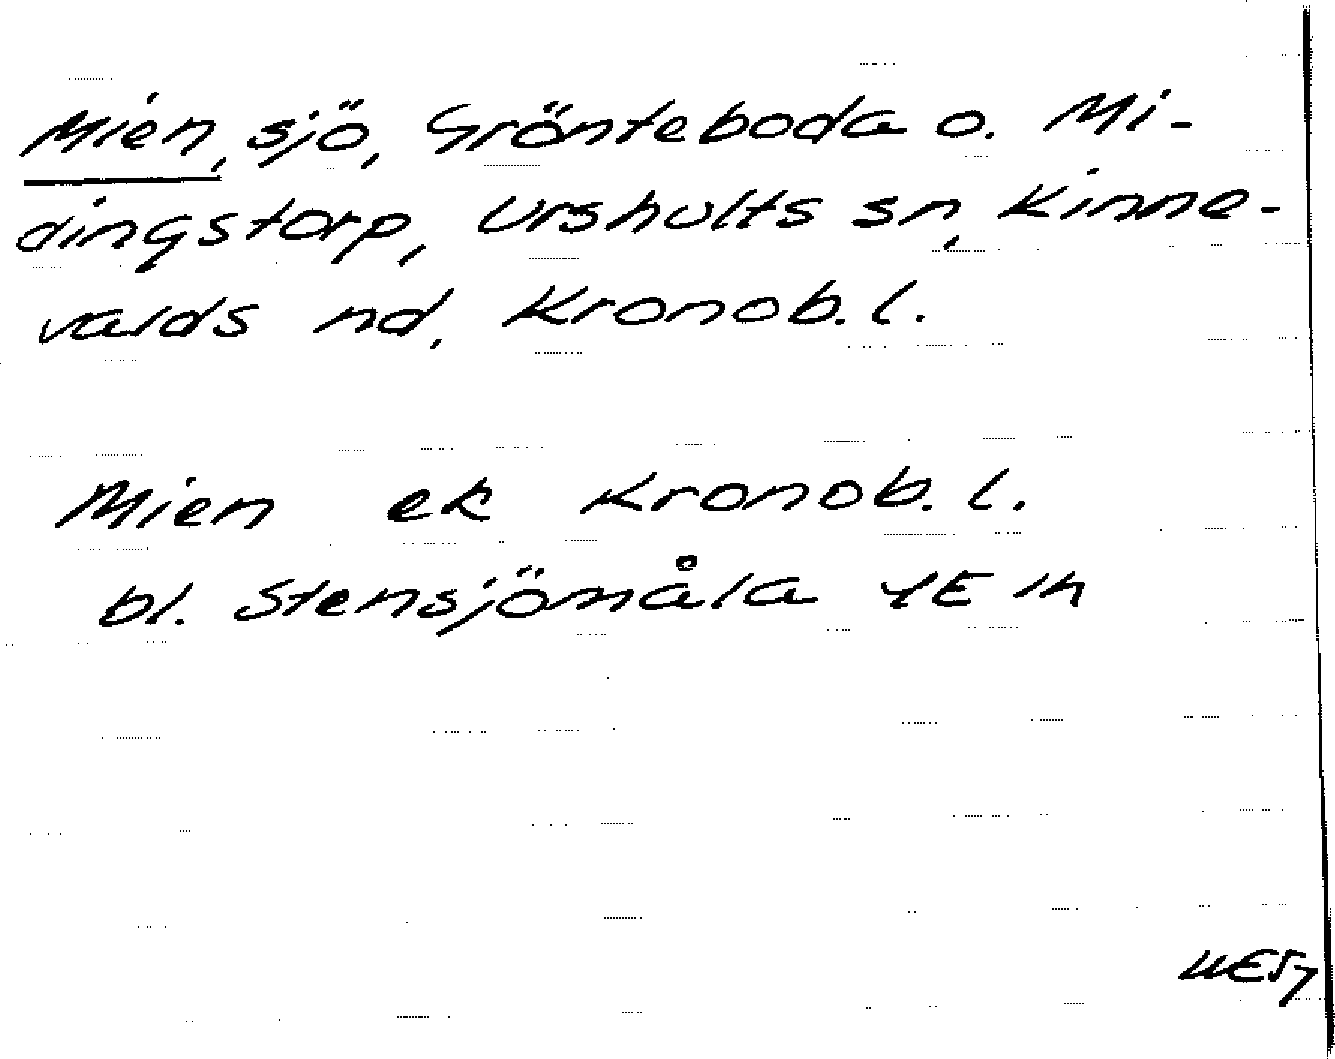 Mien, sjö, Grönteboda o. Mi-
dingstorp, Urshults sn, Kinne-
valds hd, Kronob. l.
Mien ek Kronob. l.
bl. Stensjömåla 4E 1h